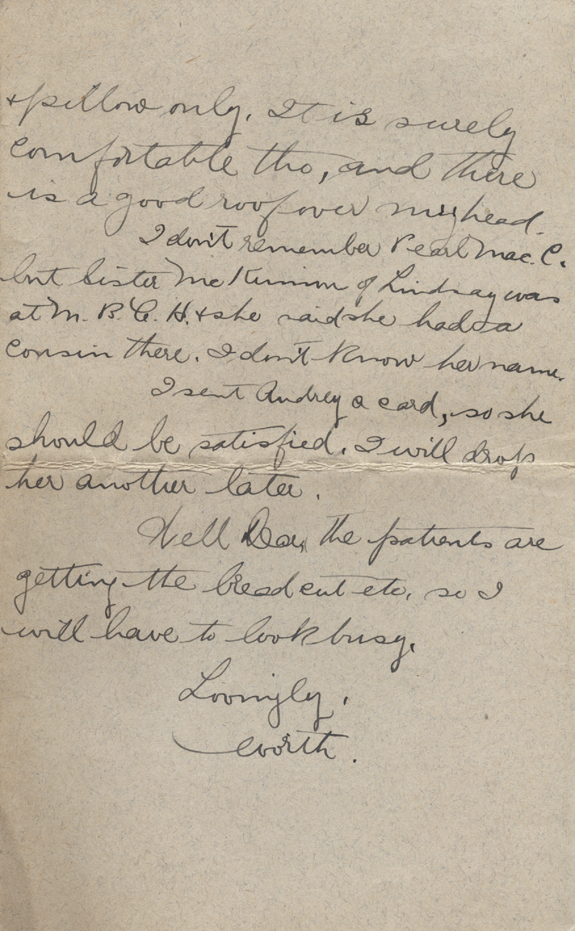 + pillow only. It is surely
comfortable tho, and there
is a good roof over my head.
I don't remember Pearl Mac. C.
but Sister McKinnon of Lindsay was
at M. B. G. H. + she said she had a
cousin there. I don't know her name.
I sent Audrey a card, so she
should be satisfied. I will drop
her another later.
Well Dear, the patients are
getting the bread cut etc. so I
will have to look busy.
Lovingly,
Worth.